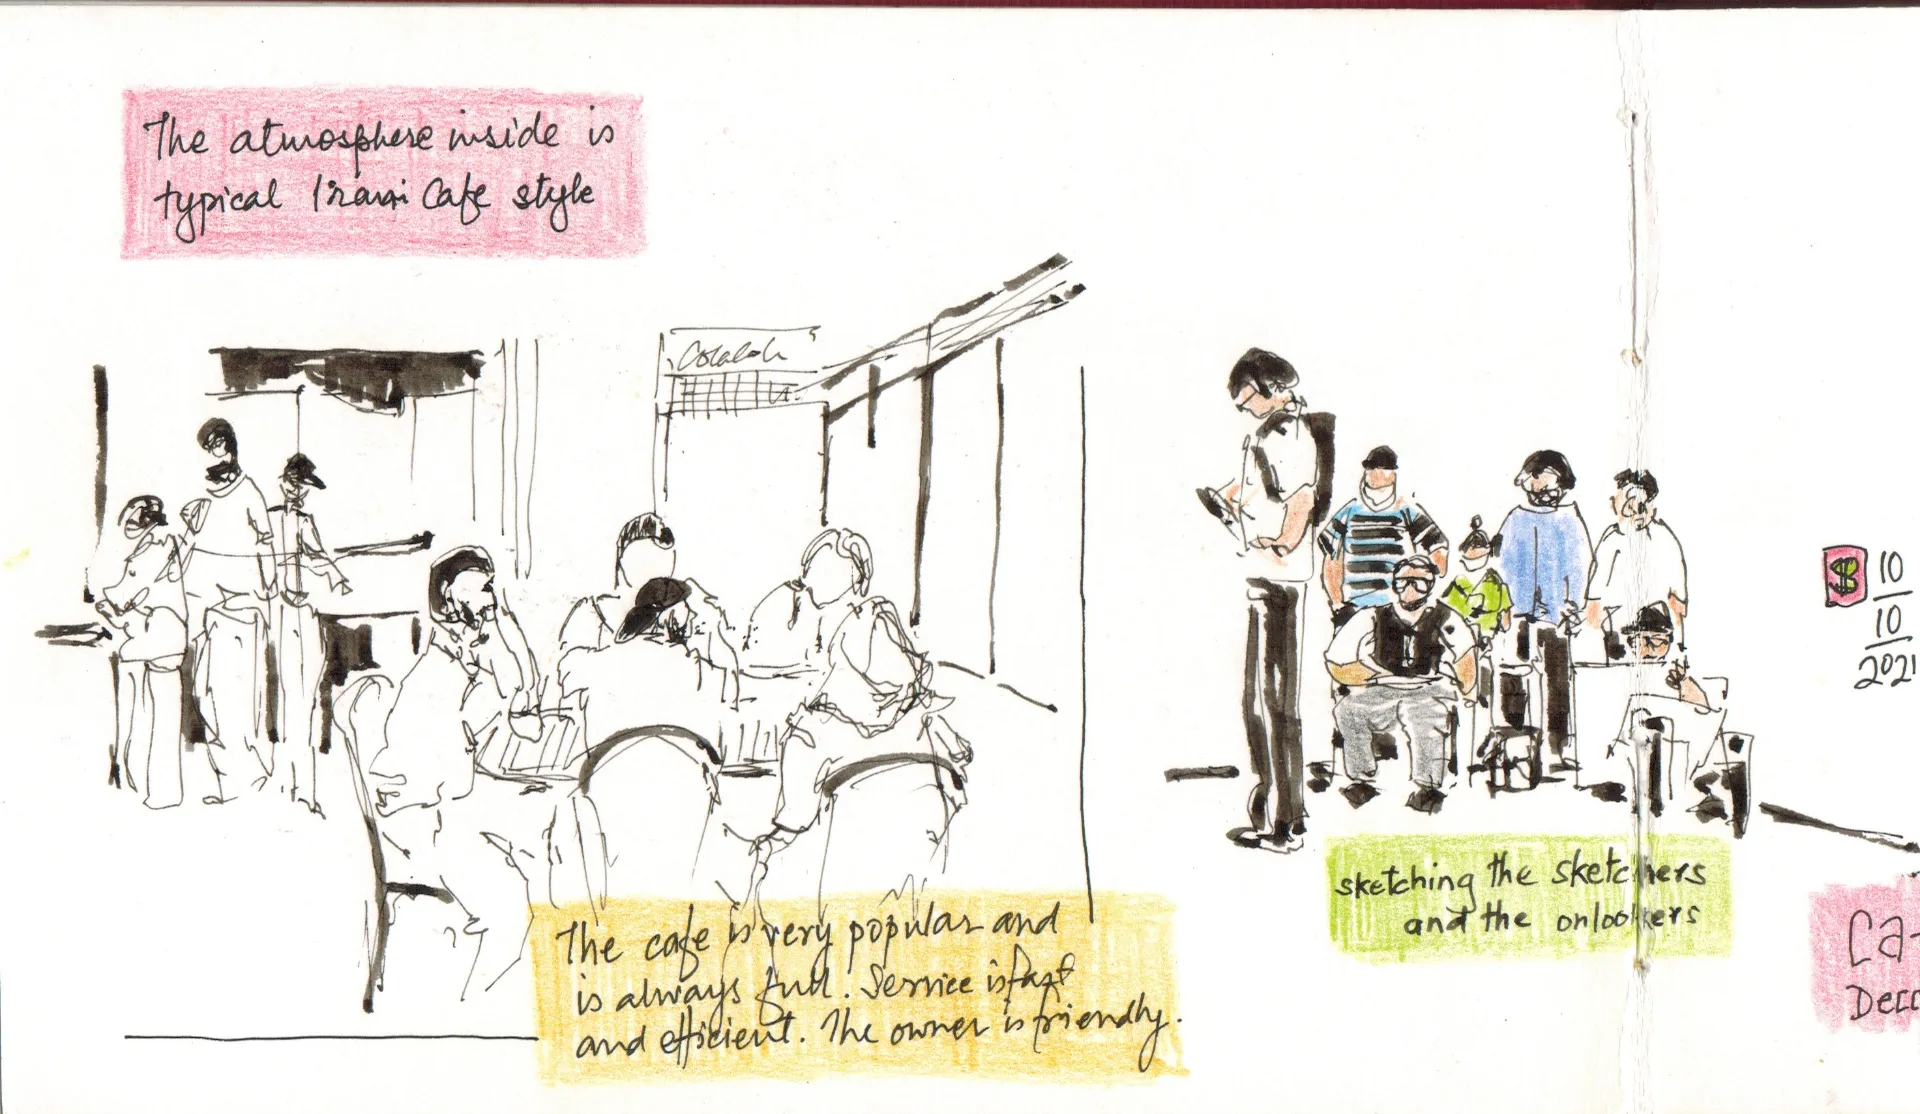 The atmosphere inside is
typical Irani Cafe style
The cafe is very popular and
is always full. Service is fast
and efficient. The owner is friendly.
sketching the sketchers
and the onlookers
10
10
2021